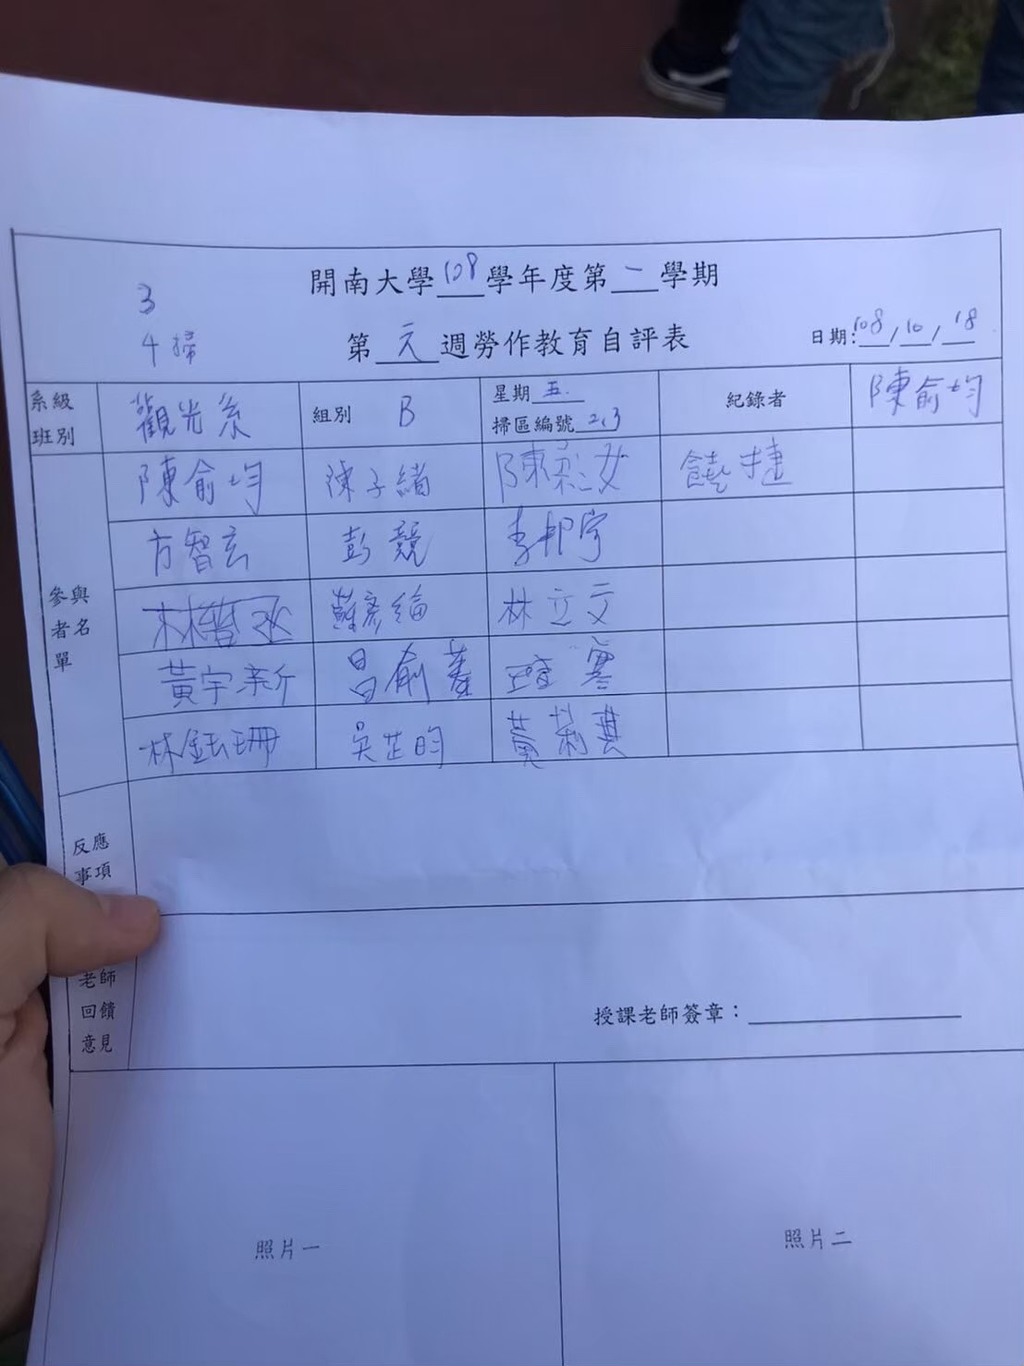 開南大學108學年度第一學期
3
4掃
第元週勞作教育自評表
日期:108/10/18
系級班別 觀光系 組別 B 星期 五. 掃區編號 2,3 紀錄者 陳俞均
參與者名單
陳俞均 陳子緒 陳 女 饒捷
方智玄 彭競 李邦宇
林 丞 蘇彥綸 林立文
黃宇新 俞蓁 寒
林鈺珊 吳芷昀 黃莉淇
反應事項
老師回饋意見
授課老師簽章：
照片一 照片二